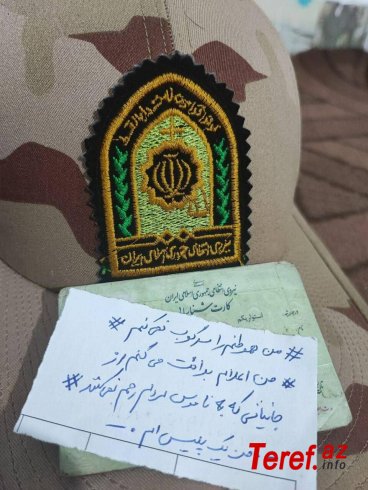 نیروی انتظامی جمهوری اسلامی ایران
نیروی انتظامی جمهوری اسلامی ایران
کارت شناسائی
# من هموطنم را سرکوب نمی کنم #
# من اعلام برائت می کنم از
جانیانی که به ناموس مردم رحم نمی کنند #
من یک پلیس ام
Teref.az
info